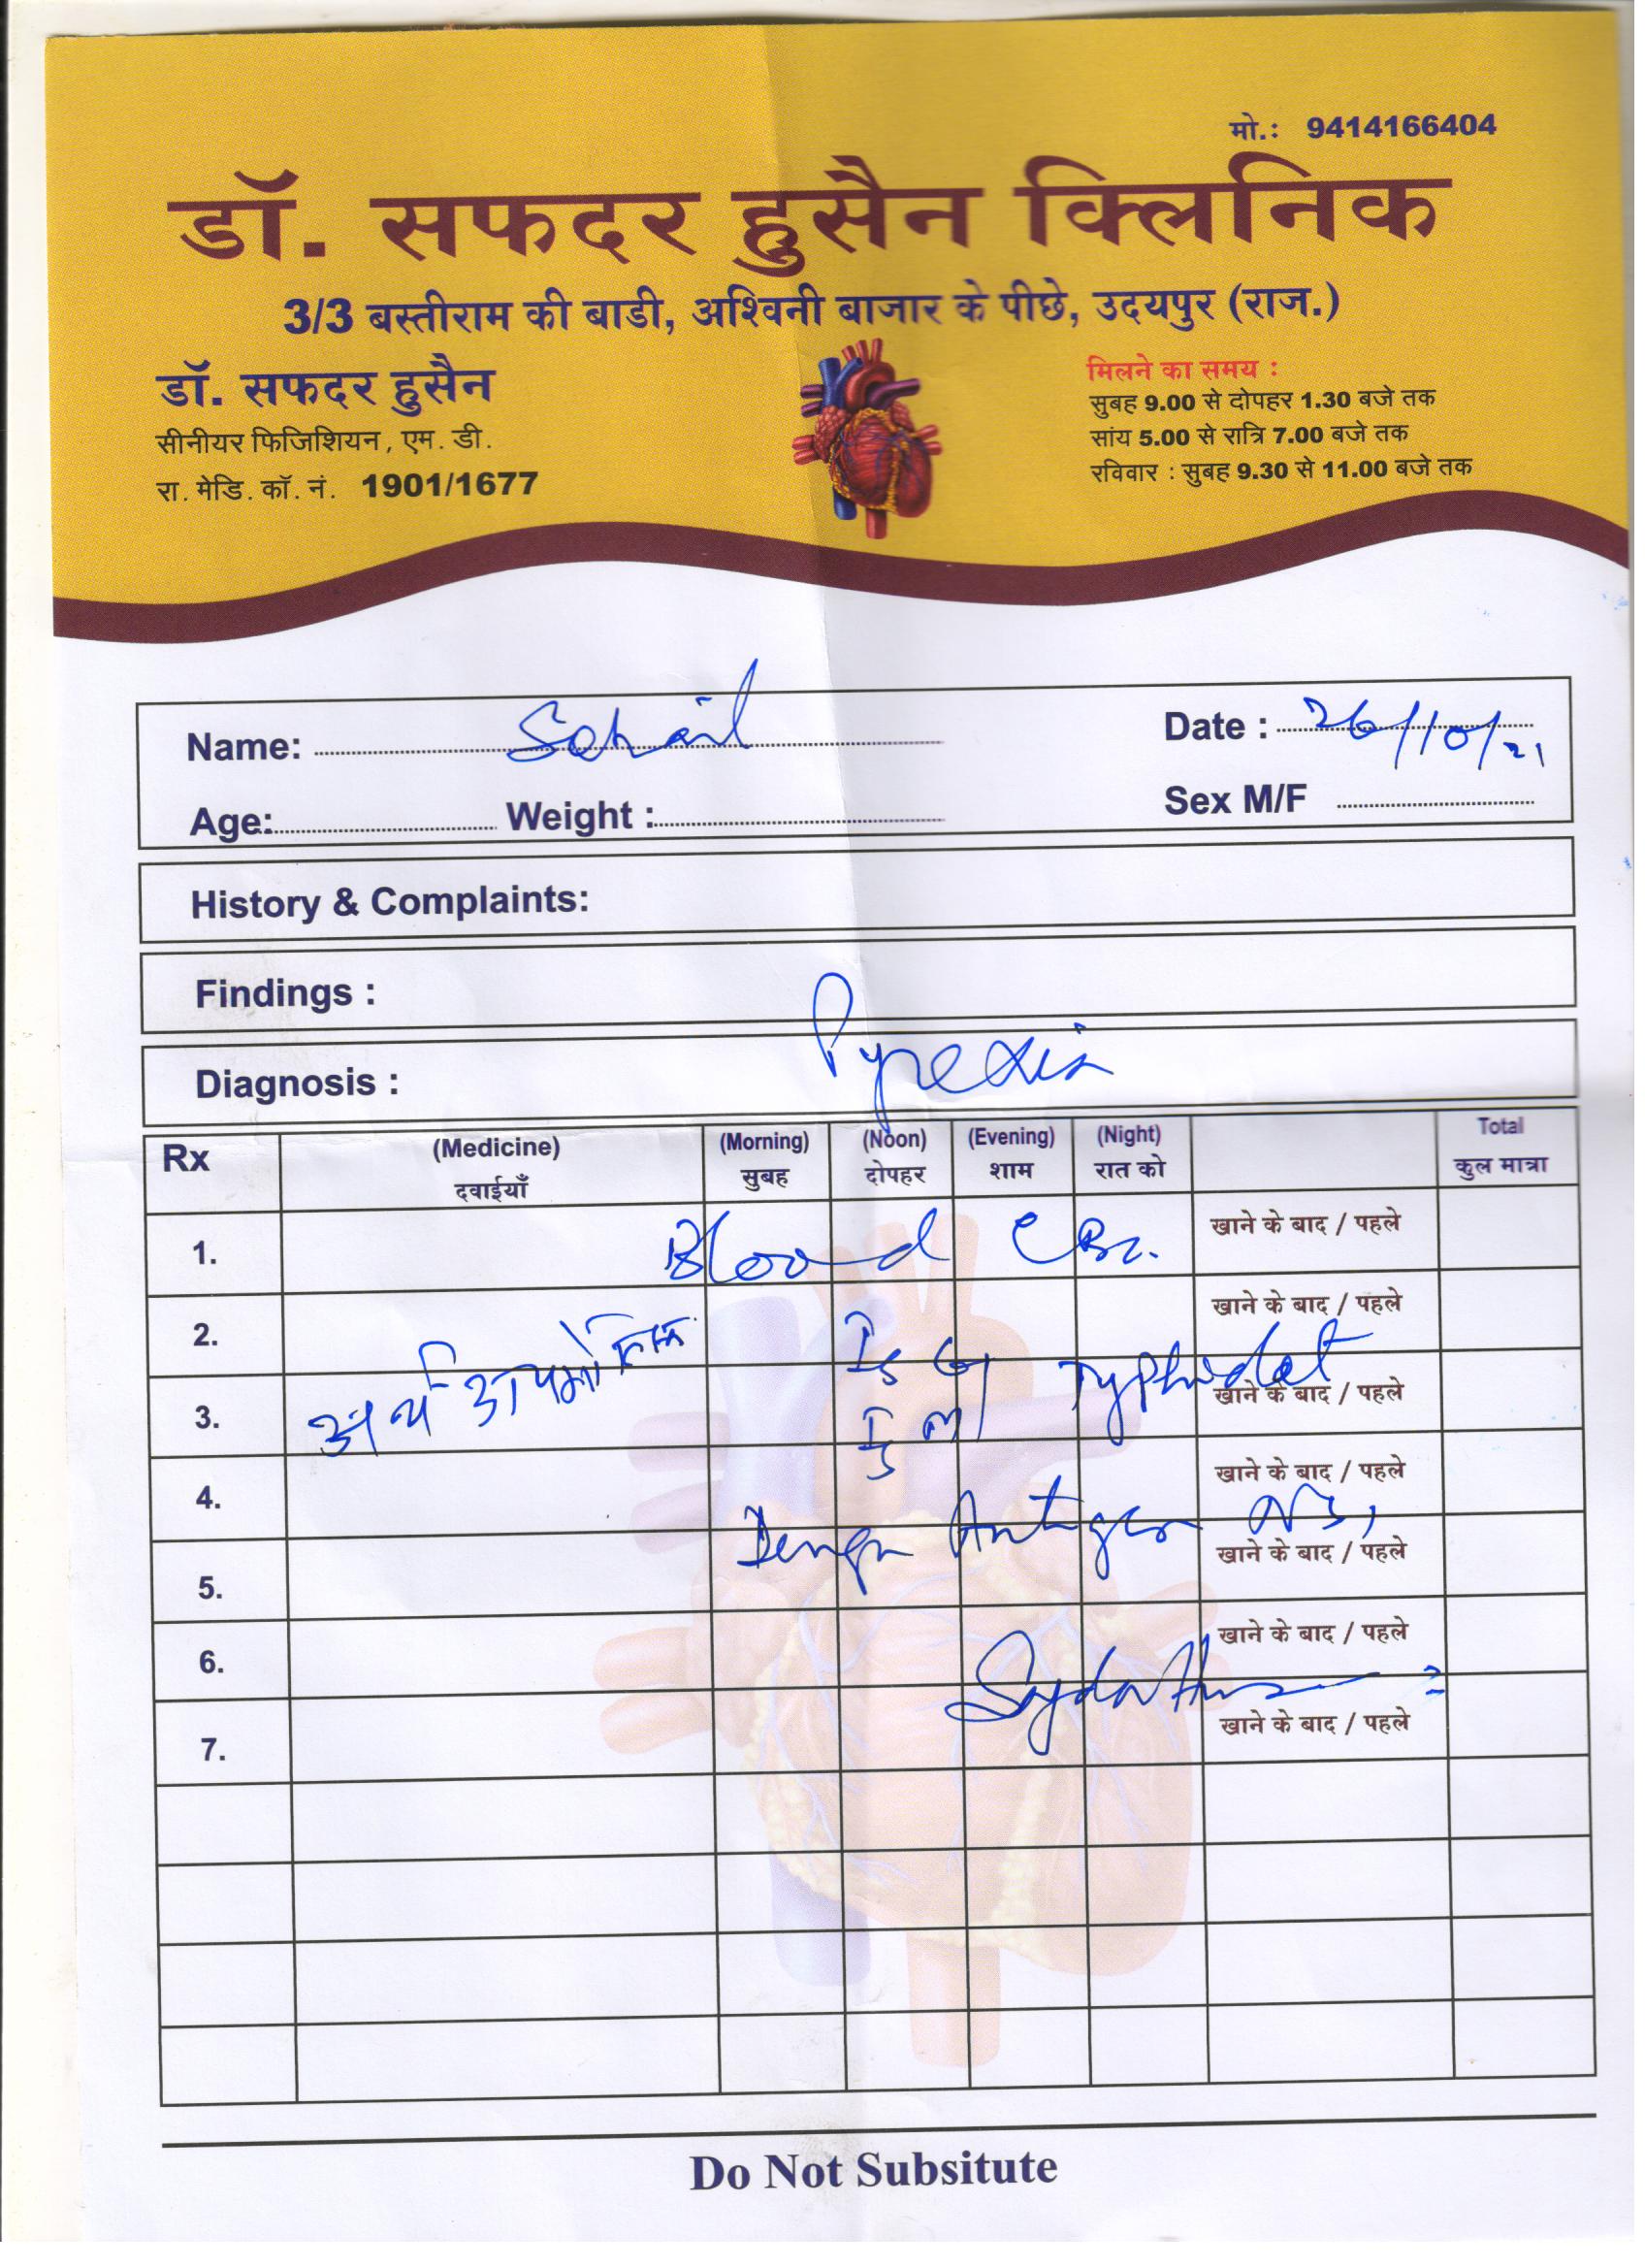 मो.: 9414166404
डॉ. सफदर हुसैन क्लिनिक
3/3 बस्तीराम की बाडी, अश्विनी बाजार के पीछे, उदयपुर (राज.)
डॉ. सफदर हुसैन
सीनीयर फिजिशियन, एम. डी.
रा. मेडि. कॉ. नं. 1901/1677
मिलने का समय :
सुबह 9.00 से दोपहर 1.30 बजे तक
सांय 5.00 से रात्रि 7.00 बजे तक
रविवार : सुबह 9.30 से 11.00 बजे तक
Name: Sohail Date : 26/10/21
Age: Weight : Sex M/F
History & Complaints:
Findings :
Diagnosis : Pyrexia
Rx (Medicine) (Morning) (Noon) (Evening) (Night) Total
दवाईयाँ सुबह दोपहर शाम रात को कुल मात्रा
1. Blood CBC. खाने के बाद / पहले
2. खाने के बाद / पहले
Ig G Typhidot
3. खाने के बाद / पहले
Ig M
4. खाने के बाद / पहले
Antigen
5. खाने के बाद / पहले
6. खाने के बाद / पहले
7. खाने के बाद / पहले
Do Not Subsitute